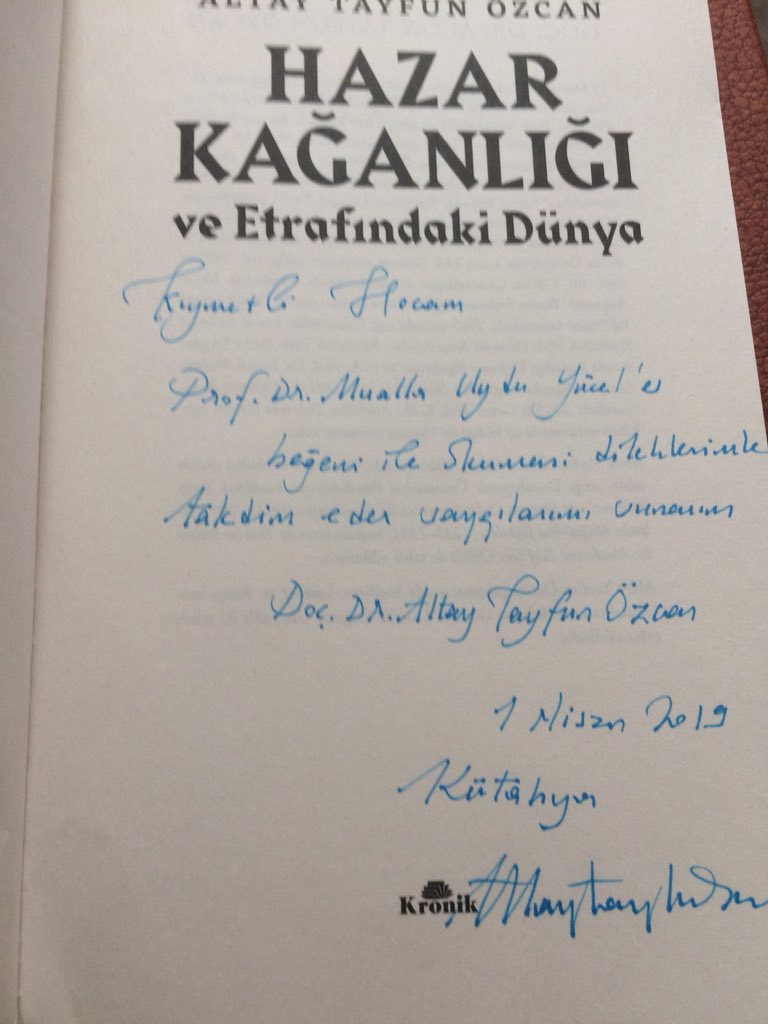 ALTAY TAYFUN ÖZCAN
HAZAR
KAĞANLIĞI
ve Etrafındaki Dünya
Kıymetli Hocam
Prof. Dr. Mualla Uydu Yücel'e
beğeni ile okuması dileklerimle
takdim eder saygılarımı sunarım
Doç. Dr. Altay Tayfun Özcan
1 Nisan 2019
Kütahya
Kronik